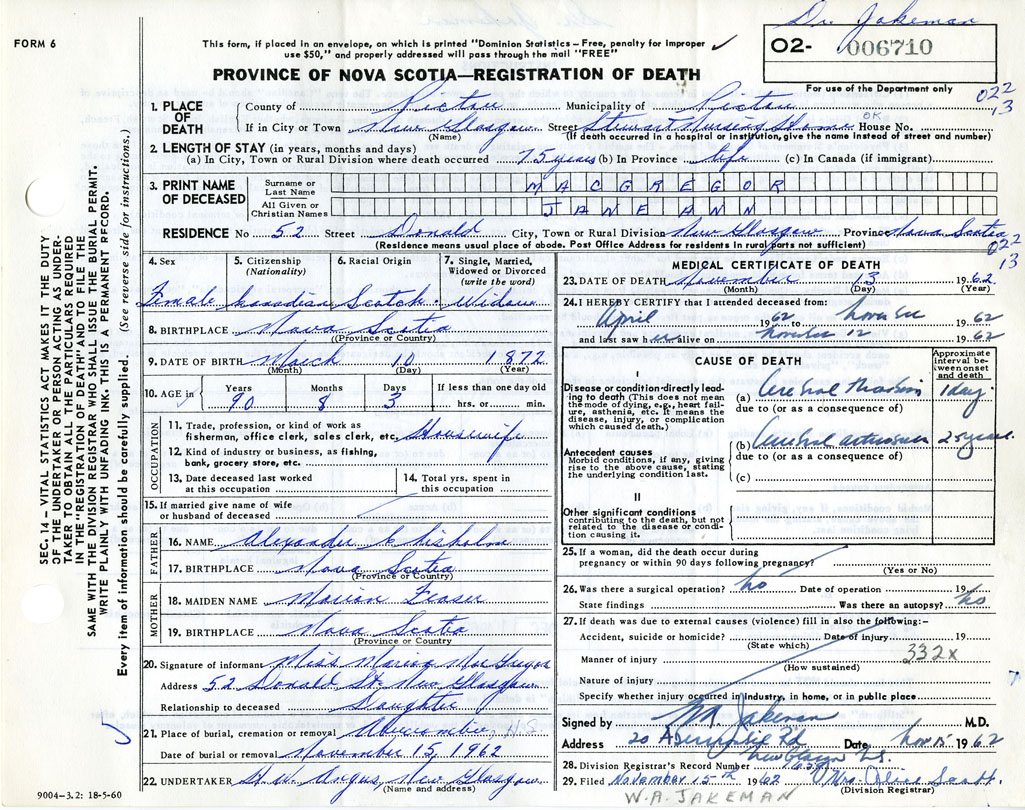 Dr. Jakeman
FORM 6
This form, if placed in an envelope, on which is printed "Dominion Statistics – Free, penalty for improper
use $50," and properly addressed will pass through the mail "FREE"
O2- 006710
For use of the Department only
PROVINCE OF NOVA SCOTIA—REGISTRATION OF DEATH
022
13
1. PLACE OF DEATH
County of Pictou Municipality of Pictou
If in City or Town New Glasgow Street Stewart Nursing Home House No.
OK
(Name) (If death occurred in a hospital or institution, give the name instead of street and number)
2. LENGTH OF STAY (in years, months and days)
(a) In City, Town or Rural Division where death occurred 75 years (b) In Province life (c) In Canada (if immigrant)
3. PRINT NAME OF DECEASED
Surname or Last Name MACGREGOR
All Given or Christian Names JANE ANN
RESIDENCE No 52 Street Donald City, Town or Rural Division New Glasgow Province Nova Scotia
(Residence means usual place of abode. Post Office Address for residents in rural parts not sufficient)
022
13
4. Sex 5. Citizenship (Nationality) 6. Racial Origin 7. Single, Married, Widowed or Divorced (write the word)
Female Canadian Scotch Widow
8. BIRTHPLACE Nova Scotia
(Province or Country)
9. DATE OF BIRTH March 10 1872
(Month) (Day) (Year)
10. AGE in Years Months Days If less than one day old
90 8 3 hrs. or min.
OCCUPATION
11. Trade, profession, or kind of work as
fisherman, office clerk, sales clerk, etc. Housewife
12. Kind of industry or business, as fishing,
bank, grocery store, etc.
13. Date deceased last worked
at this occupation
14. Total yrs. spent in
this occupation
15. If married give name of wife
or husband of deceased
FATHER
16. NAME Alexander Chisholm
17. BIRTHPLACE Nova Scotia
(Province or Country)
MOTHER
18. MAIDEN NAME Marion Fraser
19. BIRTHPLACE Nova Scotia
(Province or Country
20. Signature of informant Miss Marion MacGregor
Address 52 Donald St. New Glasgow
Relationship to deceased Daughter
21. Place of burial, cremation or removal Abercrombie, N.S.
Date of burial or removal November 15, 1962
22. UNDERTAKER H.W. Angus, New Glasgow
(Name and address)
9004-3.2: 18-5-60
MEDICAL CERTIFICATE OF DEATH
23. DATE OF DEATH November 13 1962
(Month) (Day) (Year)
24. I HEREBY CERTIFY that I attended deceased from:
April 1962 to 1962
and last saw her alive on 12 1962
CAUSE OF DEATH
Approximate interval between onset and death
I
Disease or condition directly leading to death (This does not mean
the mode of dying, e.g., heart failure,
asthenia, etc. It means the
disease, injury, or complication
which caused death.)
(a) Cerebral thrombosis 1 day
due to (or as a consequence of)
Antecedent causes
Morbid conditions, if any, giving
rise to the above cause, stating
the underlying condition last.
(b) Cerebral 2 years
due to (or as a consequence of)
(c)
II
Other significant conditions
contributing to the death, but not
related to the disease or condition causing it.
25. If a woman, did the death occur during
pregnancy or within 90 days following pregnancy?
(Yes or No)
26. Was there a surgical operation? no Date of operation 19
State findings Was there an autopsy? no
27. If death was due to external causes (violence) fill in also the following:-
Accident, suicide or homicide? Date of injury 19
(State which)
332X
Manner of injury
(How sustained)
Nature of injury
Specify whether injury occurred in industry, in home, or in public place
Signed by M. Jakeman M.D.
Address 20 Abercrombie Rd Date Nov 15 1962
New Glasgow N.S.
28. Division Registrar's Record Number
29. Filed November 15th 1962 Mrs. Olive Scott
(Division Registrar)
W.A. JAKEMAN
SEC. 14 – VITAL STATISTICS ACT MAKES IT THE DUTY
OF THE UNDERTAKER OR PERSON ACTING AS UNDER-
TAKER TO OBTAIN ALL THE PARTICULARS REQUIRED
IN THE "REGISTRATION OF DEATH" AND TO FILE THE
SAME WITH THE DIVISION REGISTRAR WHO SHALL ISSUE THE BURIAL PERMIT.
WRITE PLAINLY WITH UNFADING INK. THIS IS A PERMANENT RECORD.
Every item of information should be carefully supplied. (See reverse side for instructions.)